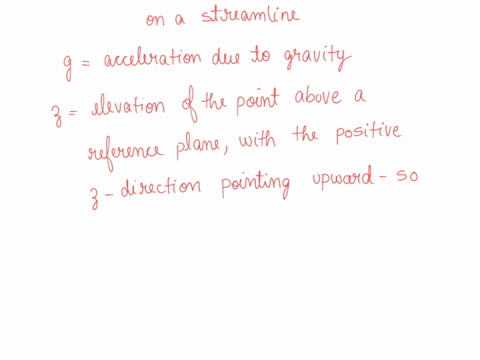 on a streamline
g = acceleration due to gravity
z = elevation of the point above a
reference plane, with the positive
z - direction pointing upward - so